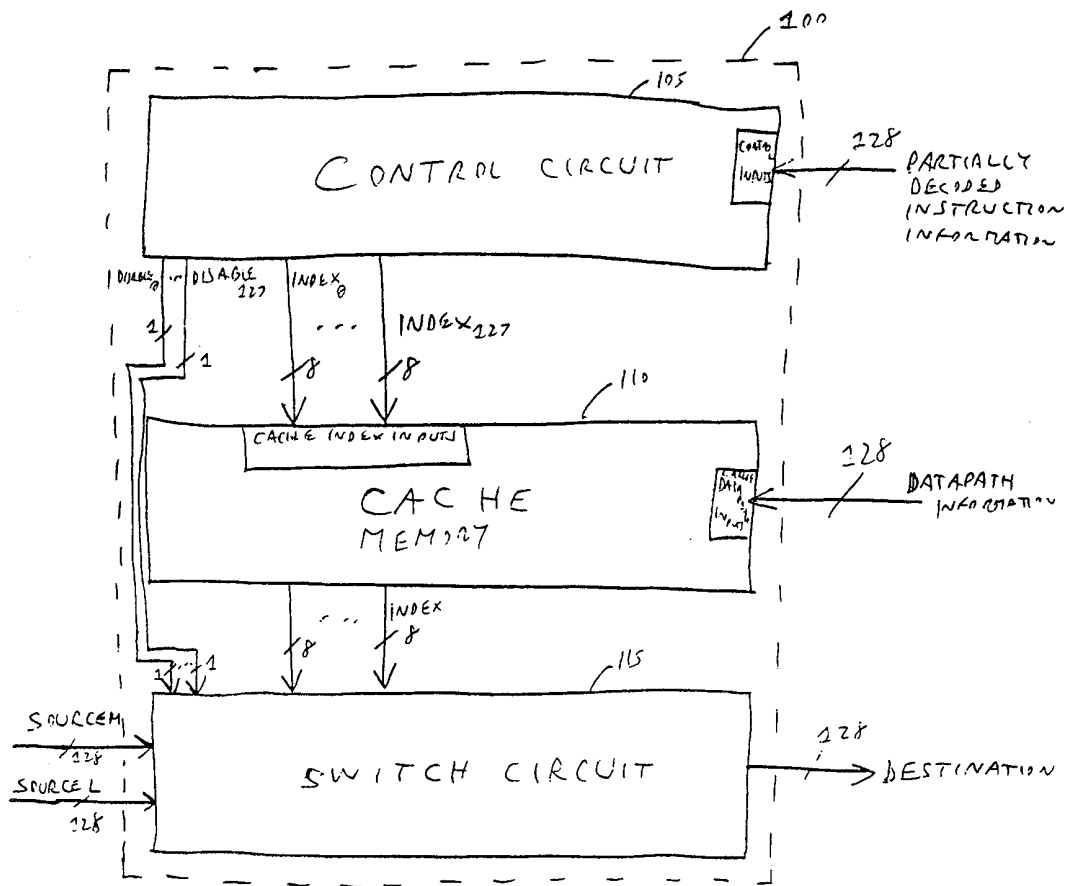 100
105
CONTROL CIRCUIT
CONTROL
INPUTS
128
PARTIALLY
DECODED
INSTRUCTION
INFORMATION
DISABLE0 ... DISABLE127
INDEX0
... INDEX127
1
1
8
8
110
CACHE INDEX INPUTS
CACHE
MEMORY
DATA
INPUTS
128
DATAPATH
INFORMATION
... INDEX
8
8
1 ... 1
115
SOURCEM
128
SOURCEL
128
SWITCH CIRCUIT
128
DESTINATION